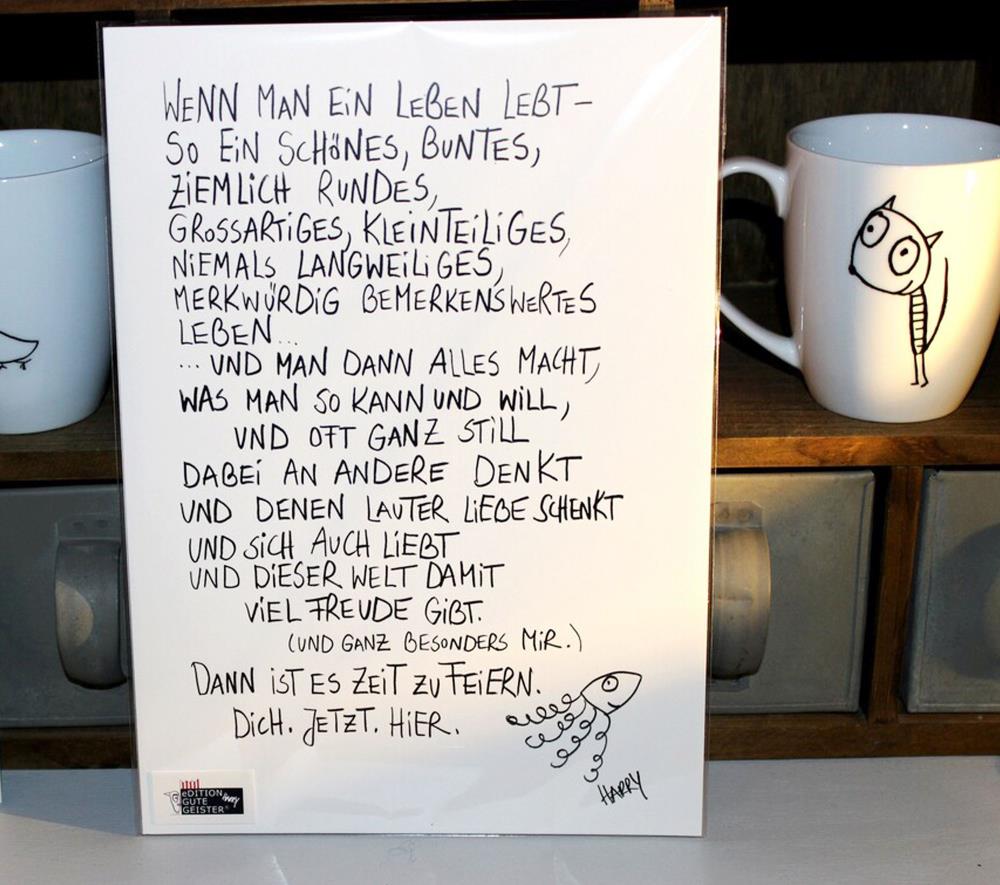 WENN MAN EIN LEBEN LEBT–
SO EIN SCHÖNES, BUNTES,
ZIEMLICH RUNDES,
GROSSARTIGES, KLEINTEILIGES,
NIEMALS LANGWEILIGES,
MERKWÜRDIG BEMERKENSWERTES
LEBEN...
...UND MAN DANN ALLES MACHT,
WAS MAN SO KANN UND WILL,
UND OFT GANZ STILL
DABEI AN ANDERE DENKT
UND DENEN LAUTER LIEBE SCHENKT
UND SICH AUCH LIEBT
UND DIESER WELT DAMIT
VIEL FREUDE GIBT.
(UND GANZ BESONDERS MIR.)
DANN IST ES ZEIT ZU FEIERN.
DICH. JETZT. HIER.
HARRY
eDITION
GUTE
GEISTER®
HARRY